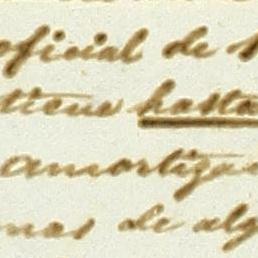 oficial de
tiene hasta
amortiza
mas de alg